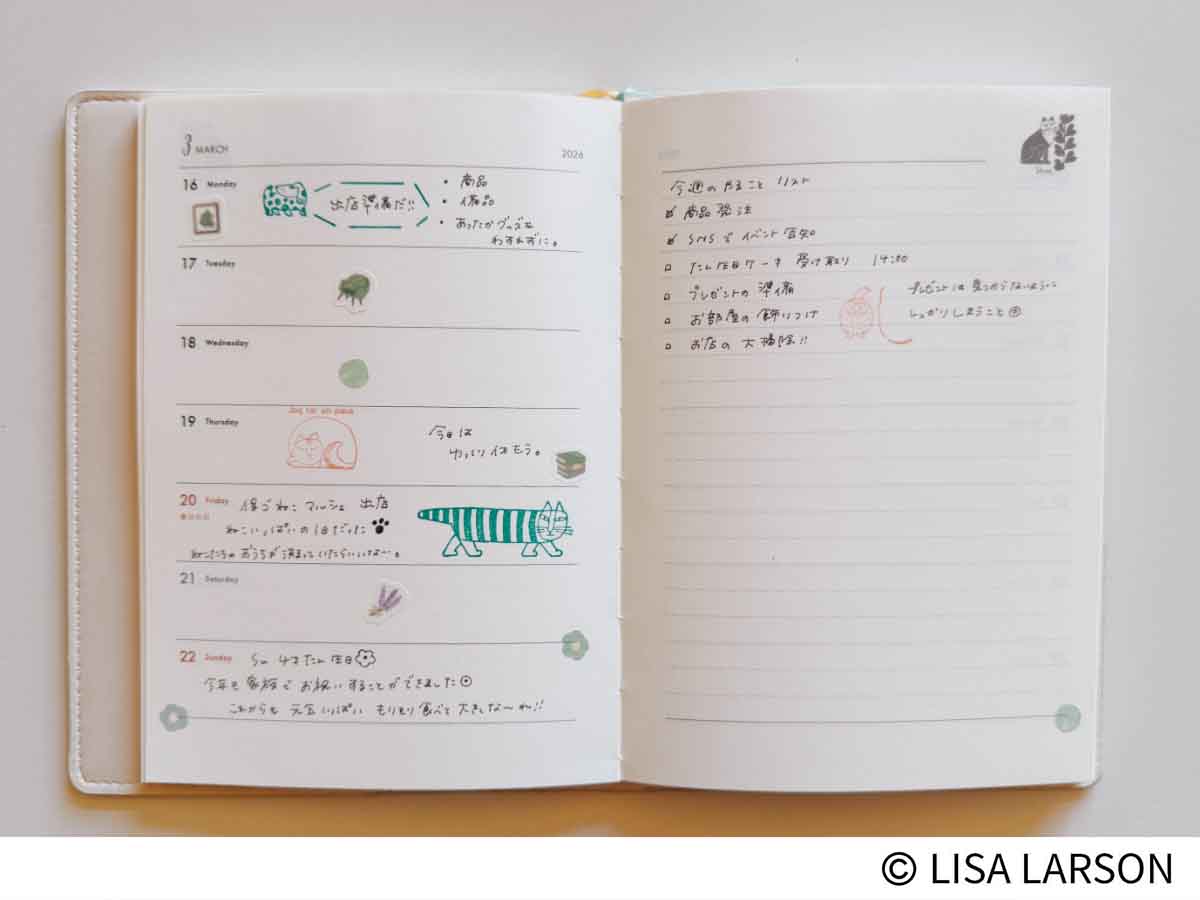 3 MARCH
2026
16 Monday
出店準備だ!!
・ 商品
・ 備品
・ あったかグッズを
わすれずに。
17 Tuesday
18 Wednesday
19 Thursday
Jag tar en paus
今日は
ゆっくり休もう。
20 Friday 保ごねこ マルシェ 出店
ねこいっぱいの1日だった
ねこたちのおうちが決まっていたらいいな〜。
21 Saturday
22 Sunday 4才たん生日
今年も家族でお祝いすることができました
これからも 元気いっぱい もりもり食べて大きくな〜れ!!
今週のやること リスト
☑ 商品発注
☑ SNSでイベント告知
□ たん生日ケーキ 受け取り 14:00
□ プレゼントの準備
□ お部屋の飾りつけ
□ お店の大掃除!!
プレゼントは見つからないように
しっかりしまうこと
© LISA LARSON